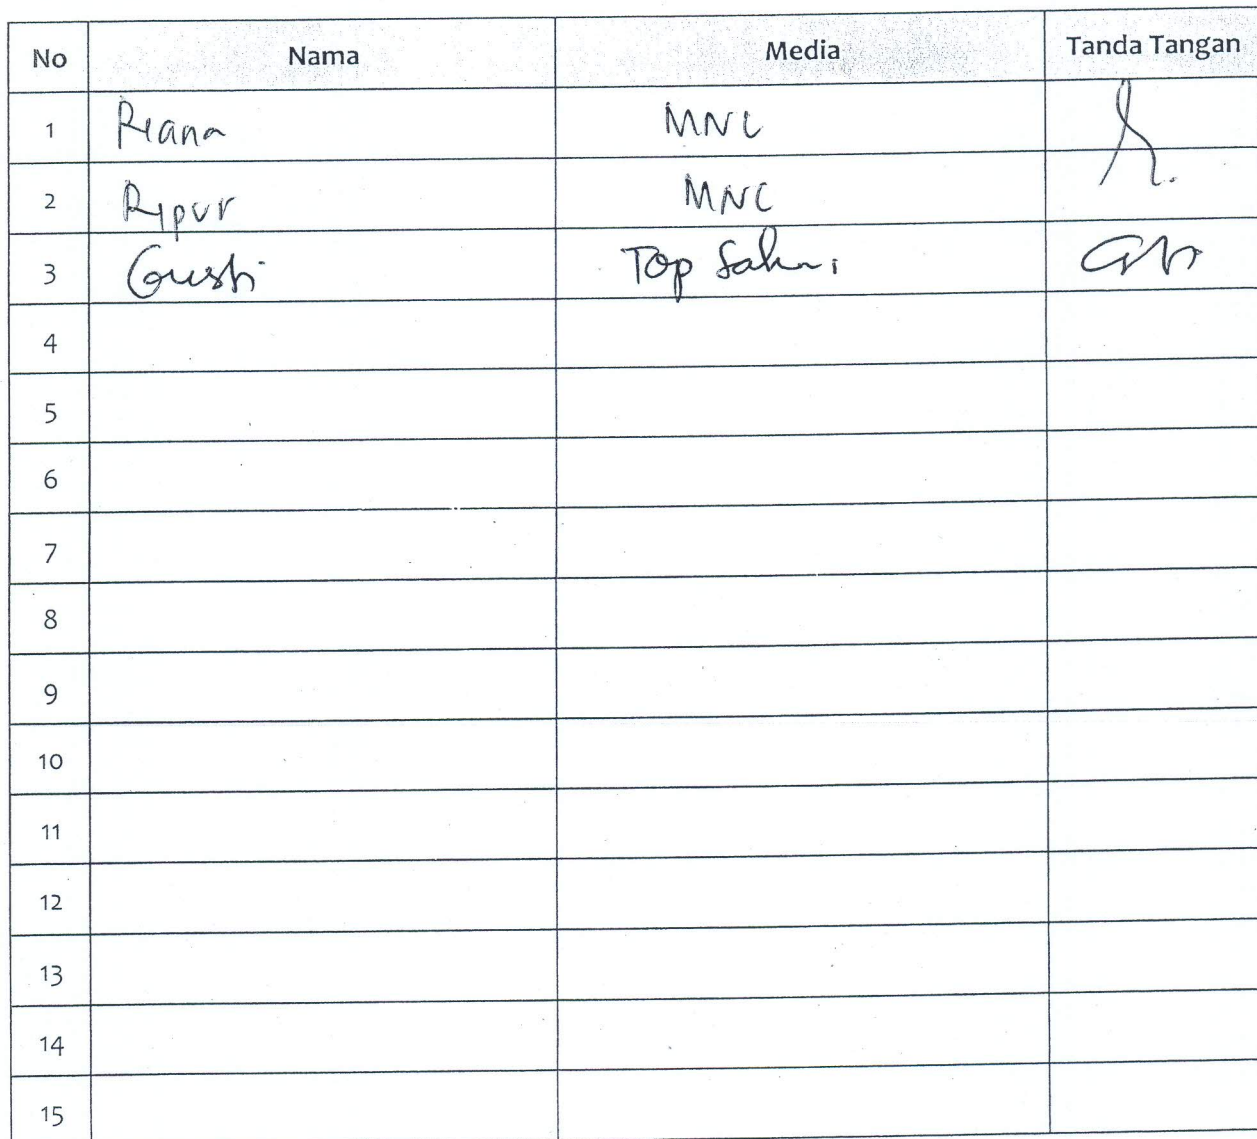 No Nama Media Tanda Tangan
1 Riana MNC
2 MNC
3 Gusti Top
4
5
6
7
8
9
10
11
12
13
14
15